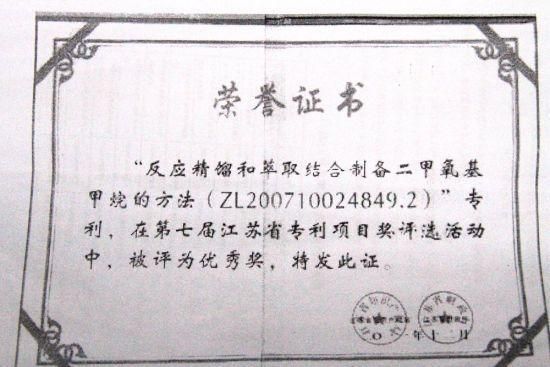 荣誉证书
“反应精馏和萃取结合制备二甲氧基
甲烷的方法（ZL200710024849.2）”专
利，在第七届江苏省专利项目奖评选活动
中，被评为优秀奖，特发此证。
年十二月